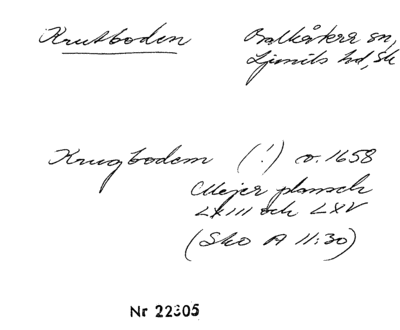 Krutboden
Balkåkra sn,
Ljunits hd, Sk
Krugbodem (!) o. 1658
Mejer plansch
LXIII och LXV
(Sko A 11:30)
Nr 22305